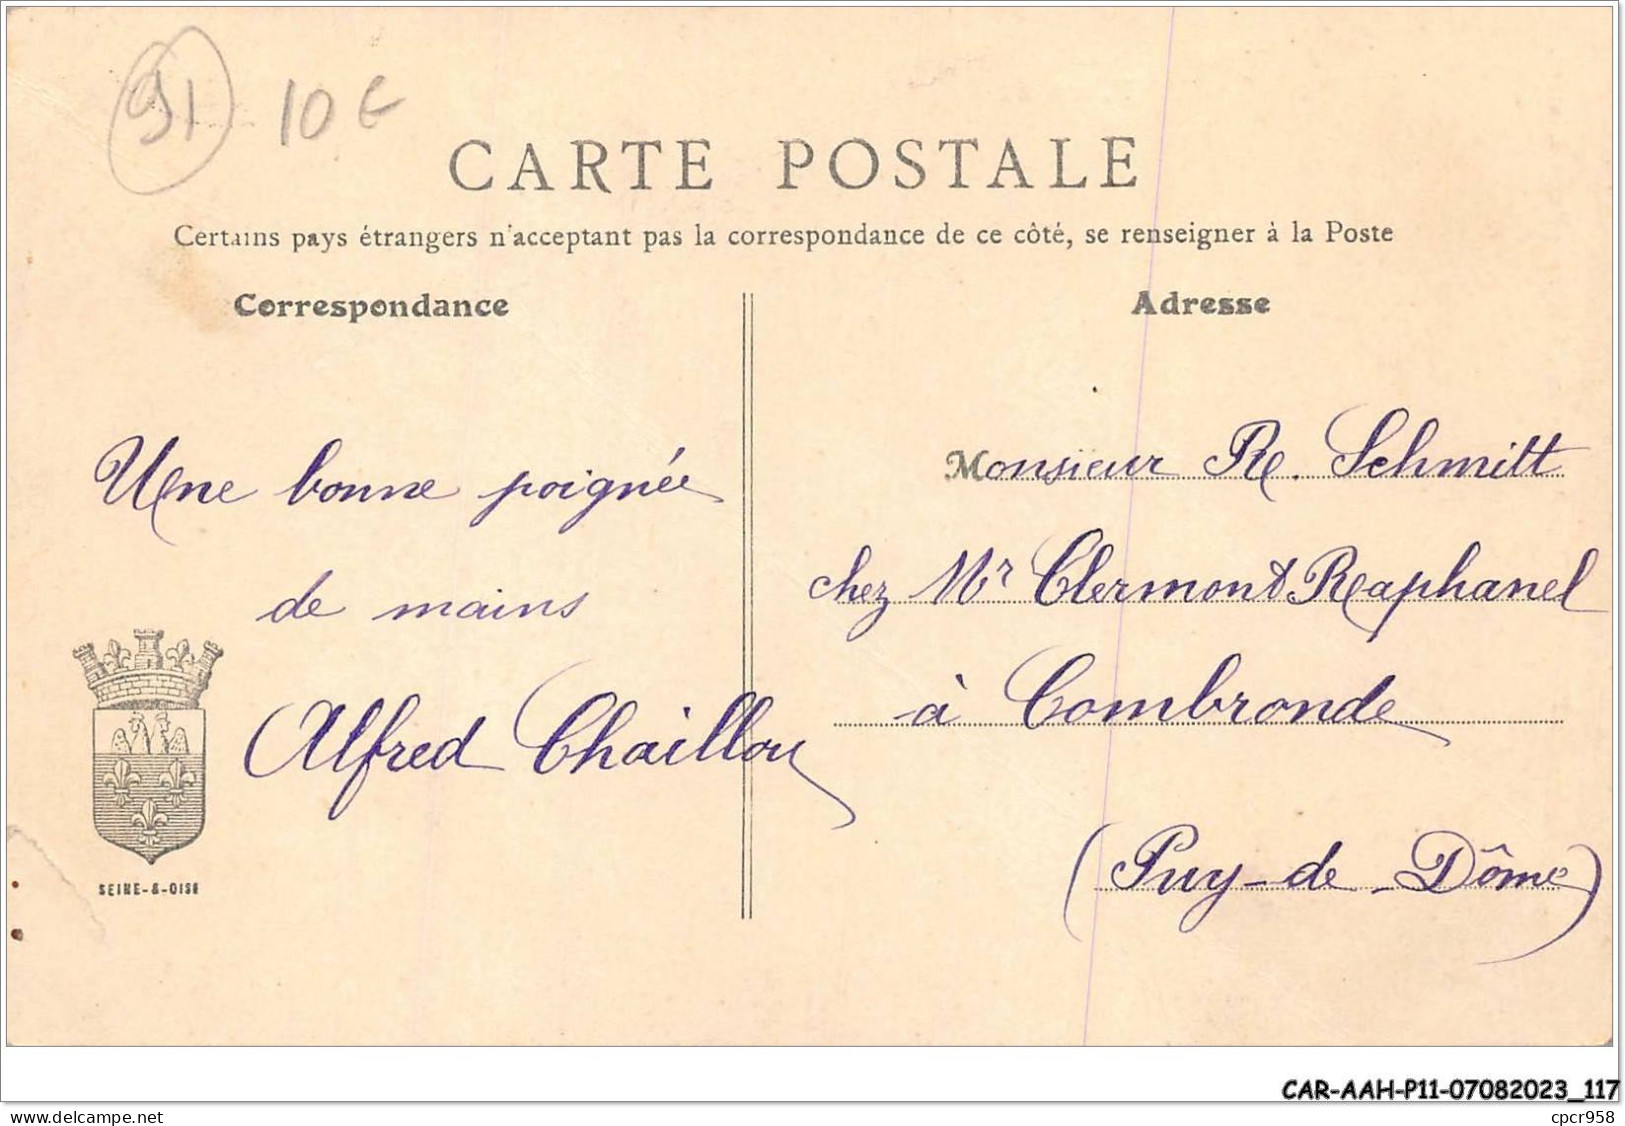 91 10 €
CARTE POSTALE
Certains pays étrangers n'acceptant pas la correspondance de ce côté, se renseigner à la Poste
Correspondance
Une bonne poignée
de mains
Alfred Chaillou
SEINE-&-OISE
Adresse
Monsieur Re. Schmitt
chez Mr Clermont Reaphanel
à Combronde
(Puy-de-Dôme)
CAR-AAH-P11-07082023_117
www.delcampe.net
cpcr958